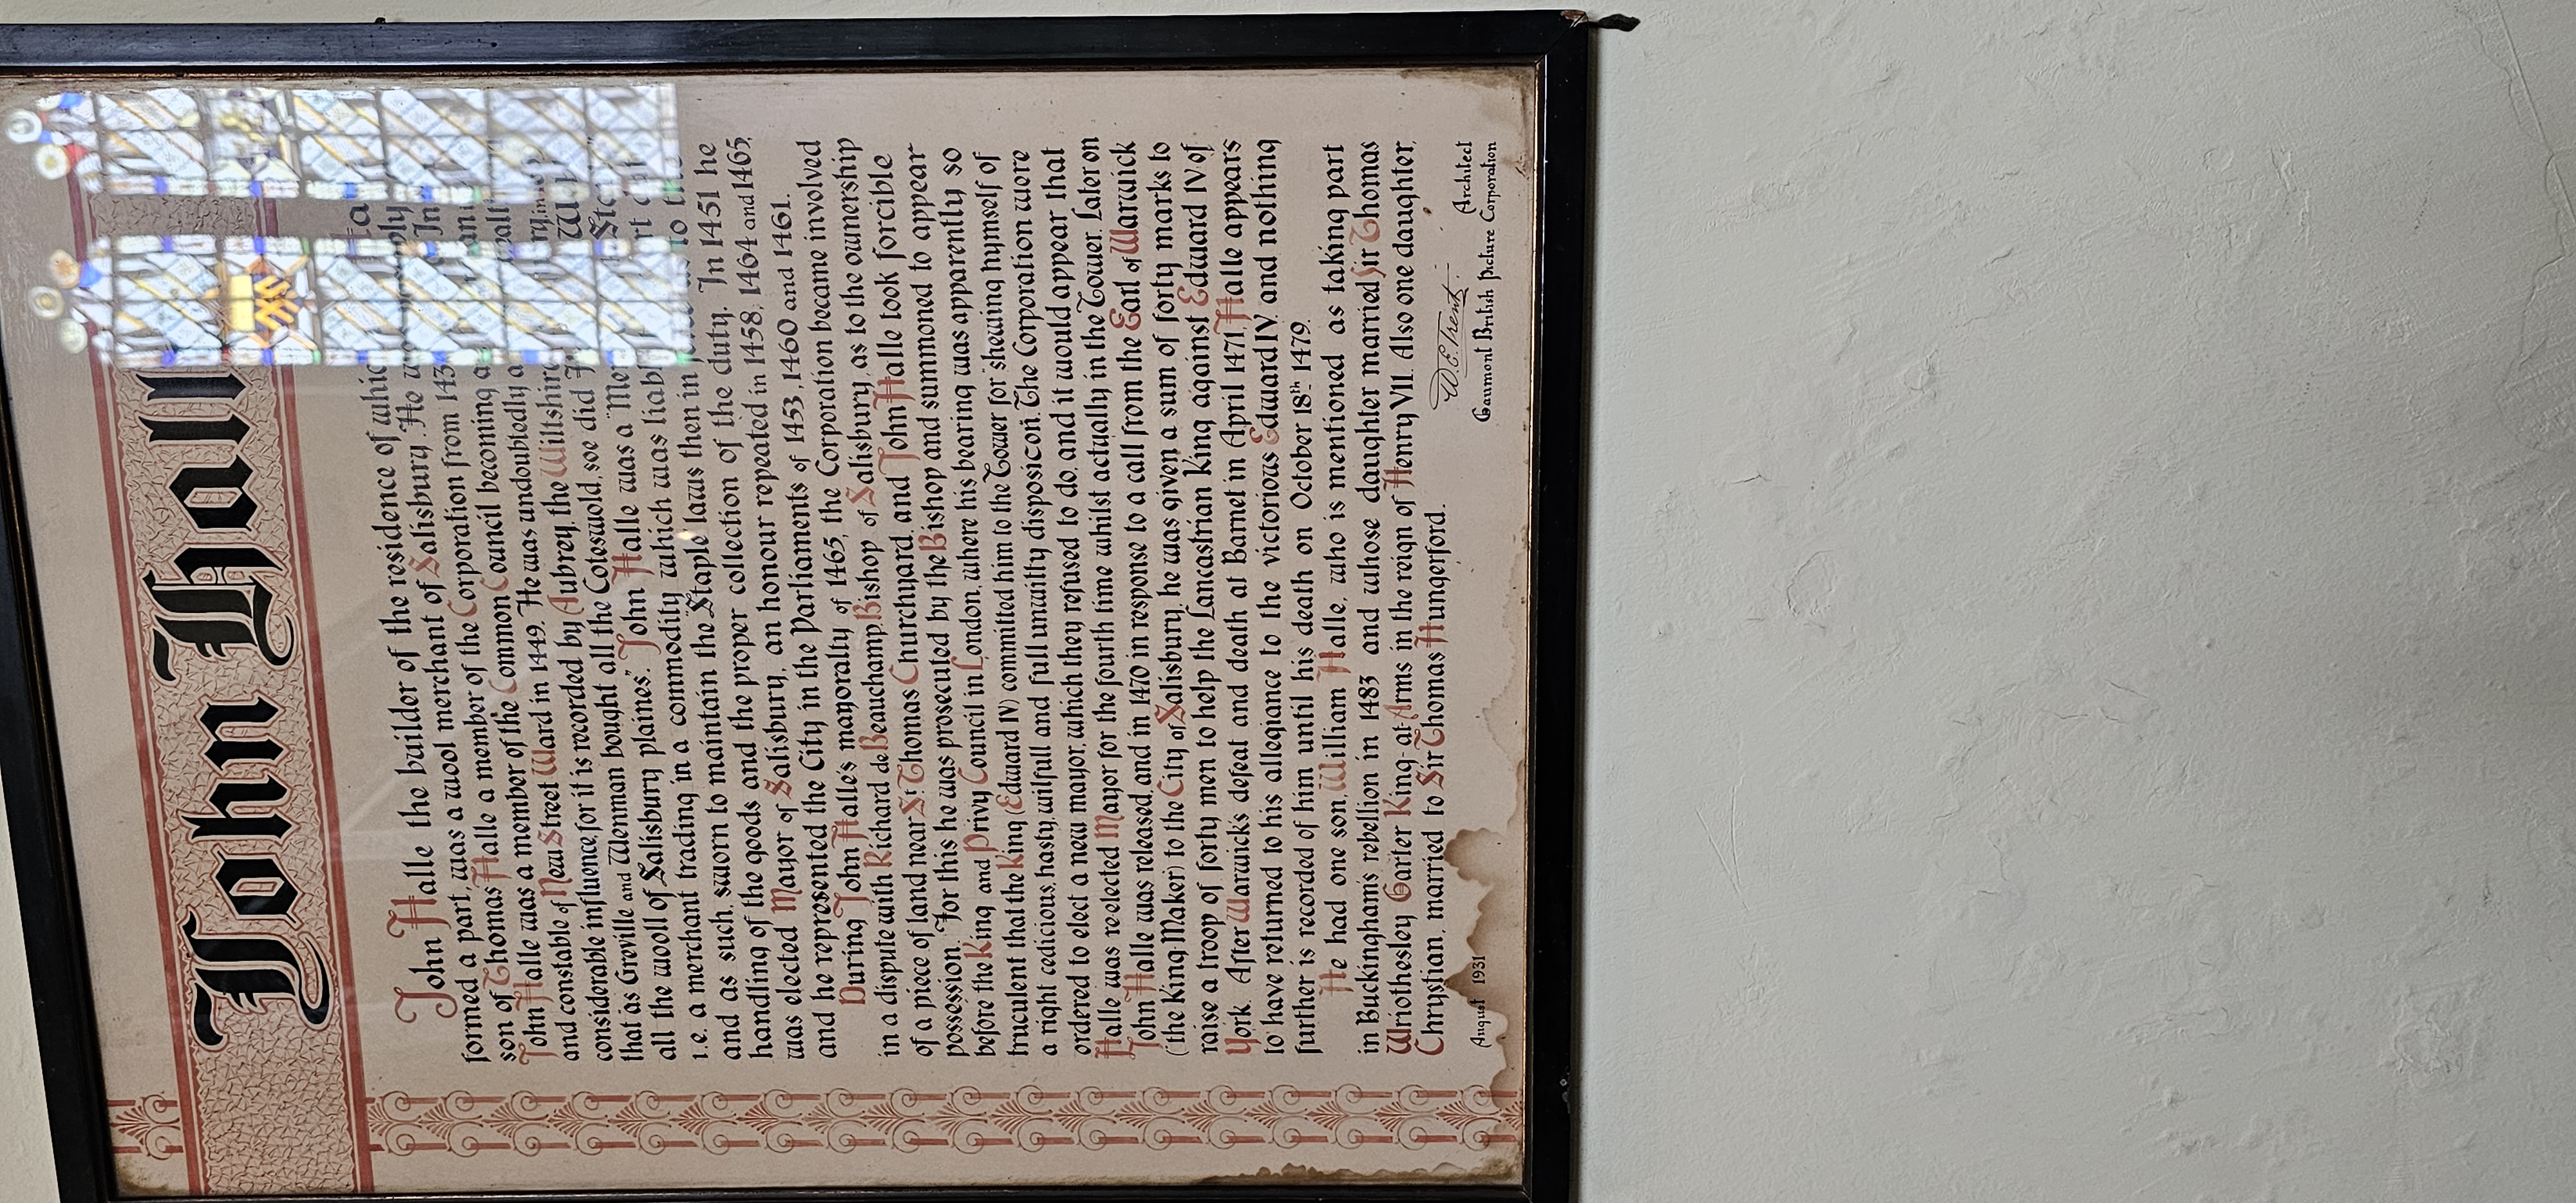 John Hall
John Halle the builder of the residence of whic
formed a part, was a wool merchant of Salisbury. He w
son of Thomas Halle a member of the Corporation from 143
John Halle was a member of the Common Council becoming a
and constable of New Street Ward in 1449. He was undoubtedly a
considerable influence, for it is recorded by Aubrey, the Wiltshire
that as Greville and Wenman bought all the Coteswold, soe did
all the wooll of Salisbury plaines". John Halle was a "Mer
i.e. a merchant trading in a commodity which was liabl
and as such, sworn to maintain the "Staple" laws then in
handling of the goods and the proper collection of the duty. In 1451 he
was elected Mayor of Salisbury, an honour repeated in 1458, 1464 and 1465,
and he represented the City in the Parliaments of 1453, 1460 and 1461.
During John Halle's mayoralty of 1465, the Corporation became involved
in a dispute with Richard de Beauchamp, Bishop of Salisbury, as to the ownership
of a piece of land near St Thomas Churchyard, and John Halle took forcible
possession. For this he was prosecuted by the Bishop and summoned to appear
before the King and Privy Council in London, where his bearing was apparently so
truculent that the King (Edward IV) committed him to the Tower for "shewing hymself of
a right cedicious, hasty, wilfull and full unwitty disposicon." The Corporation were
ordered to elect a new mayor, which they refused to do, and it would appear that
Halle was re-elected Mayor for the fourth time whilst actually in the Tower. Later on
John Halle was released, and in 1470 in response to a call from the Earl of Warwick
("the King-Maker") to the City of Salisbury, he was given a sum of forty marks to
raise a troop of forty men to help the Lancastrian King against Edward IV of
York. After Warwick's defeat and death at Barnet in April 1471, Halle appears
to have returned to his allegiance to the victorious Edward IV, and nothing
further is recorded of him until his death on October 18th 1479.
He had one son, William Halle, who is mentioned as taking part
in Buckingham's rebellion in 1483 and whose daughter married Sir Thomas
Wriothesley Garter King-at-Arms in the reign of Henry VII. Also one daughter,
Chrystian, married to Sir Thomas Hungerford.
W.E. Trent.
Architect
August 1931
Gaumont British Picture Corporation